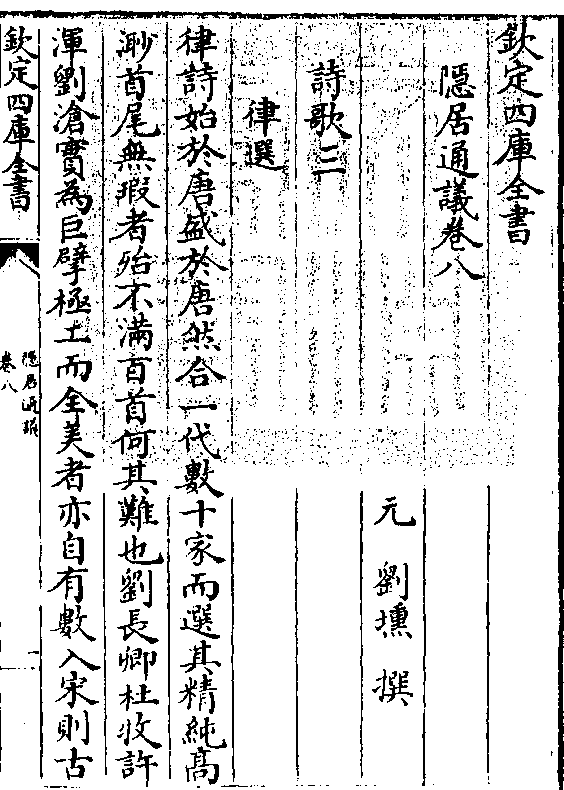 欽定四庫全書
隱居通議卷八
元 劉壎 撰
詩歌三
律選
律詩始於唐盛於唐然合一代數十家而選其精純高
渺首尾無瑕者殆不滿百首何其難也劉長卿杜牧許
渾劉滄實為巨擘極工而全美者亦自有數入宋則古
欽定四庫全書
隱居通議
卷八
一